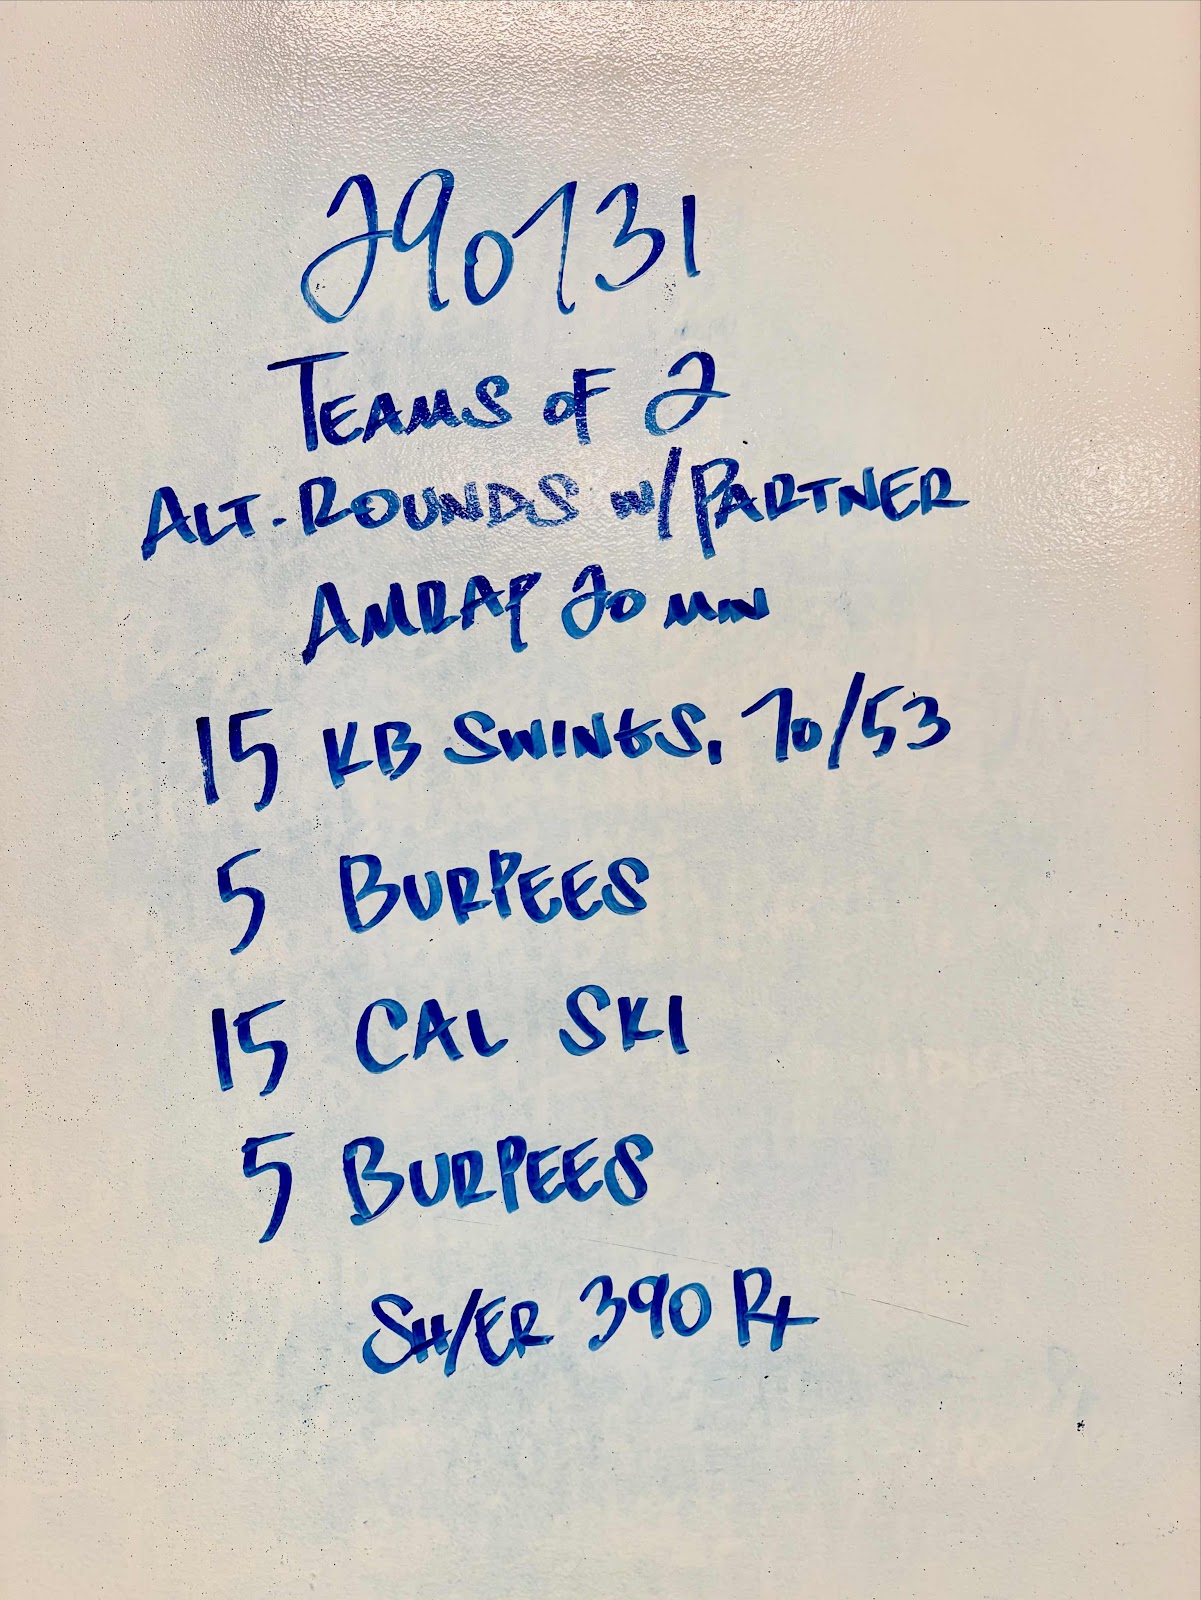 290731
TEAMS OF 2
ALT. ROUNDS W/PARTNER
AMRAP 20 MIN
15 KB SWINGS, 70/53
5 BURPEES
15 CAL SKI
5 BURPEES
SH/ER 390 Rx